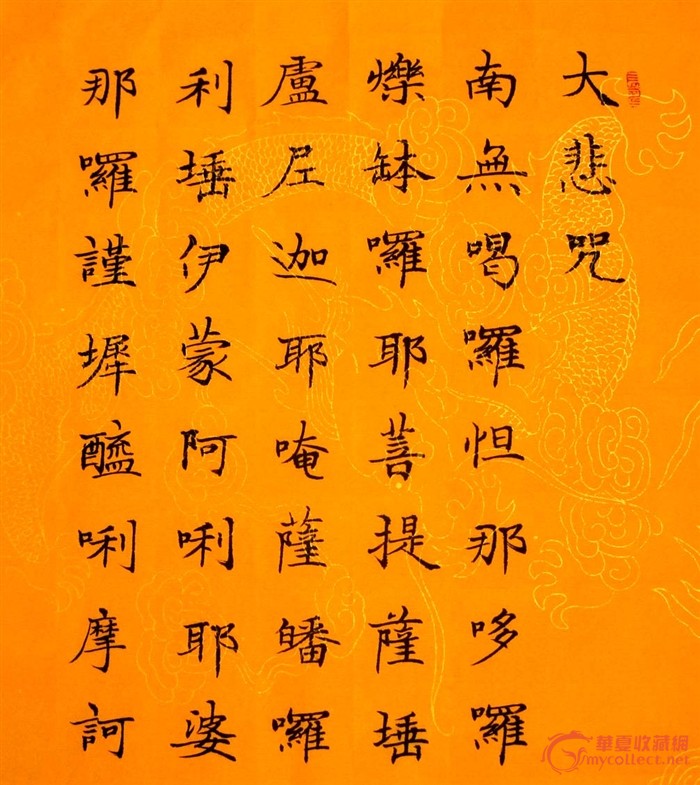 大悲咒
南無喝囉怛那哆囉
爍缽囉耶菩提薩埵
盧尼迦耶唵薩皤囉
利埵伊蒙阿唎耶婆
那囉謹墀醯唎摩訶
華夏收藏網
mycollect.net